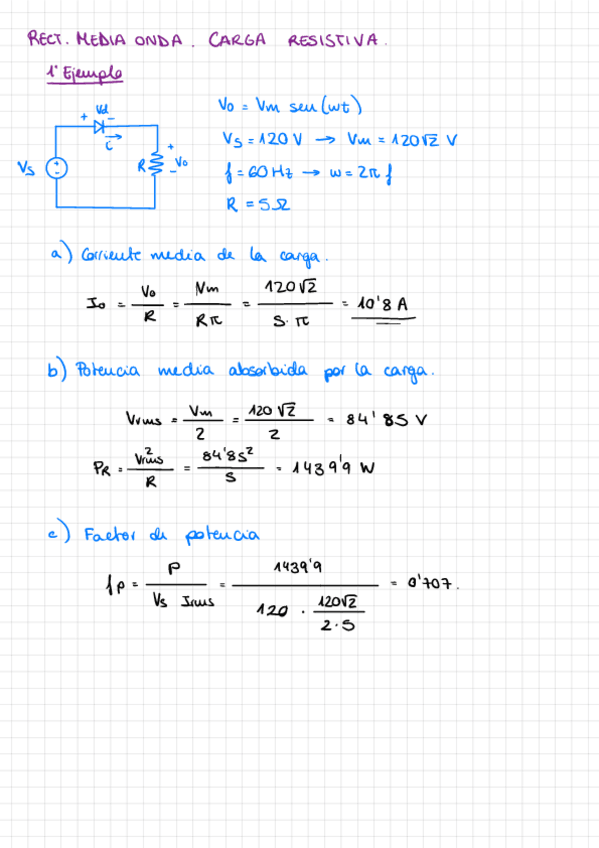 RECT. MEDIA ONDA. CARGA RESISTIVA.
1º Ejemplo
+ Vd -
i
Vs
+ -
R
+ Vo -
Vo = Vm sen(wt)
Vs = 120 V → Vm = 120√2 V
f = 60 Hz → w = 2π f
R = 5Ω
a) Corriente media de la carga.
Io = Vo/R = Vm/Rπ = 120√2/5·π = 10'8 A
b) Potencia media absorbida por la carga.
Vrms = Vm/2 = 120√2/2 = 84'85 V
PR = Vrms²/R = 84'85²/5 = 1439'9 W
c) Factor de potencia
fp = P/Vs Irms = 1439'9/120 · 120√2/2·5 = 0'707.